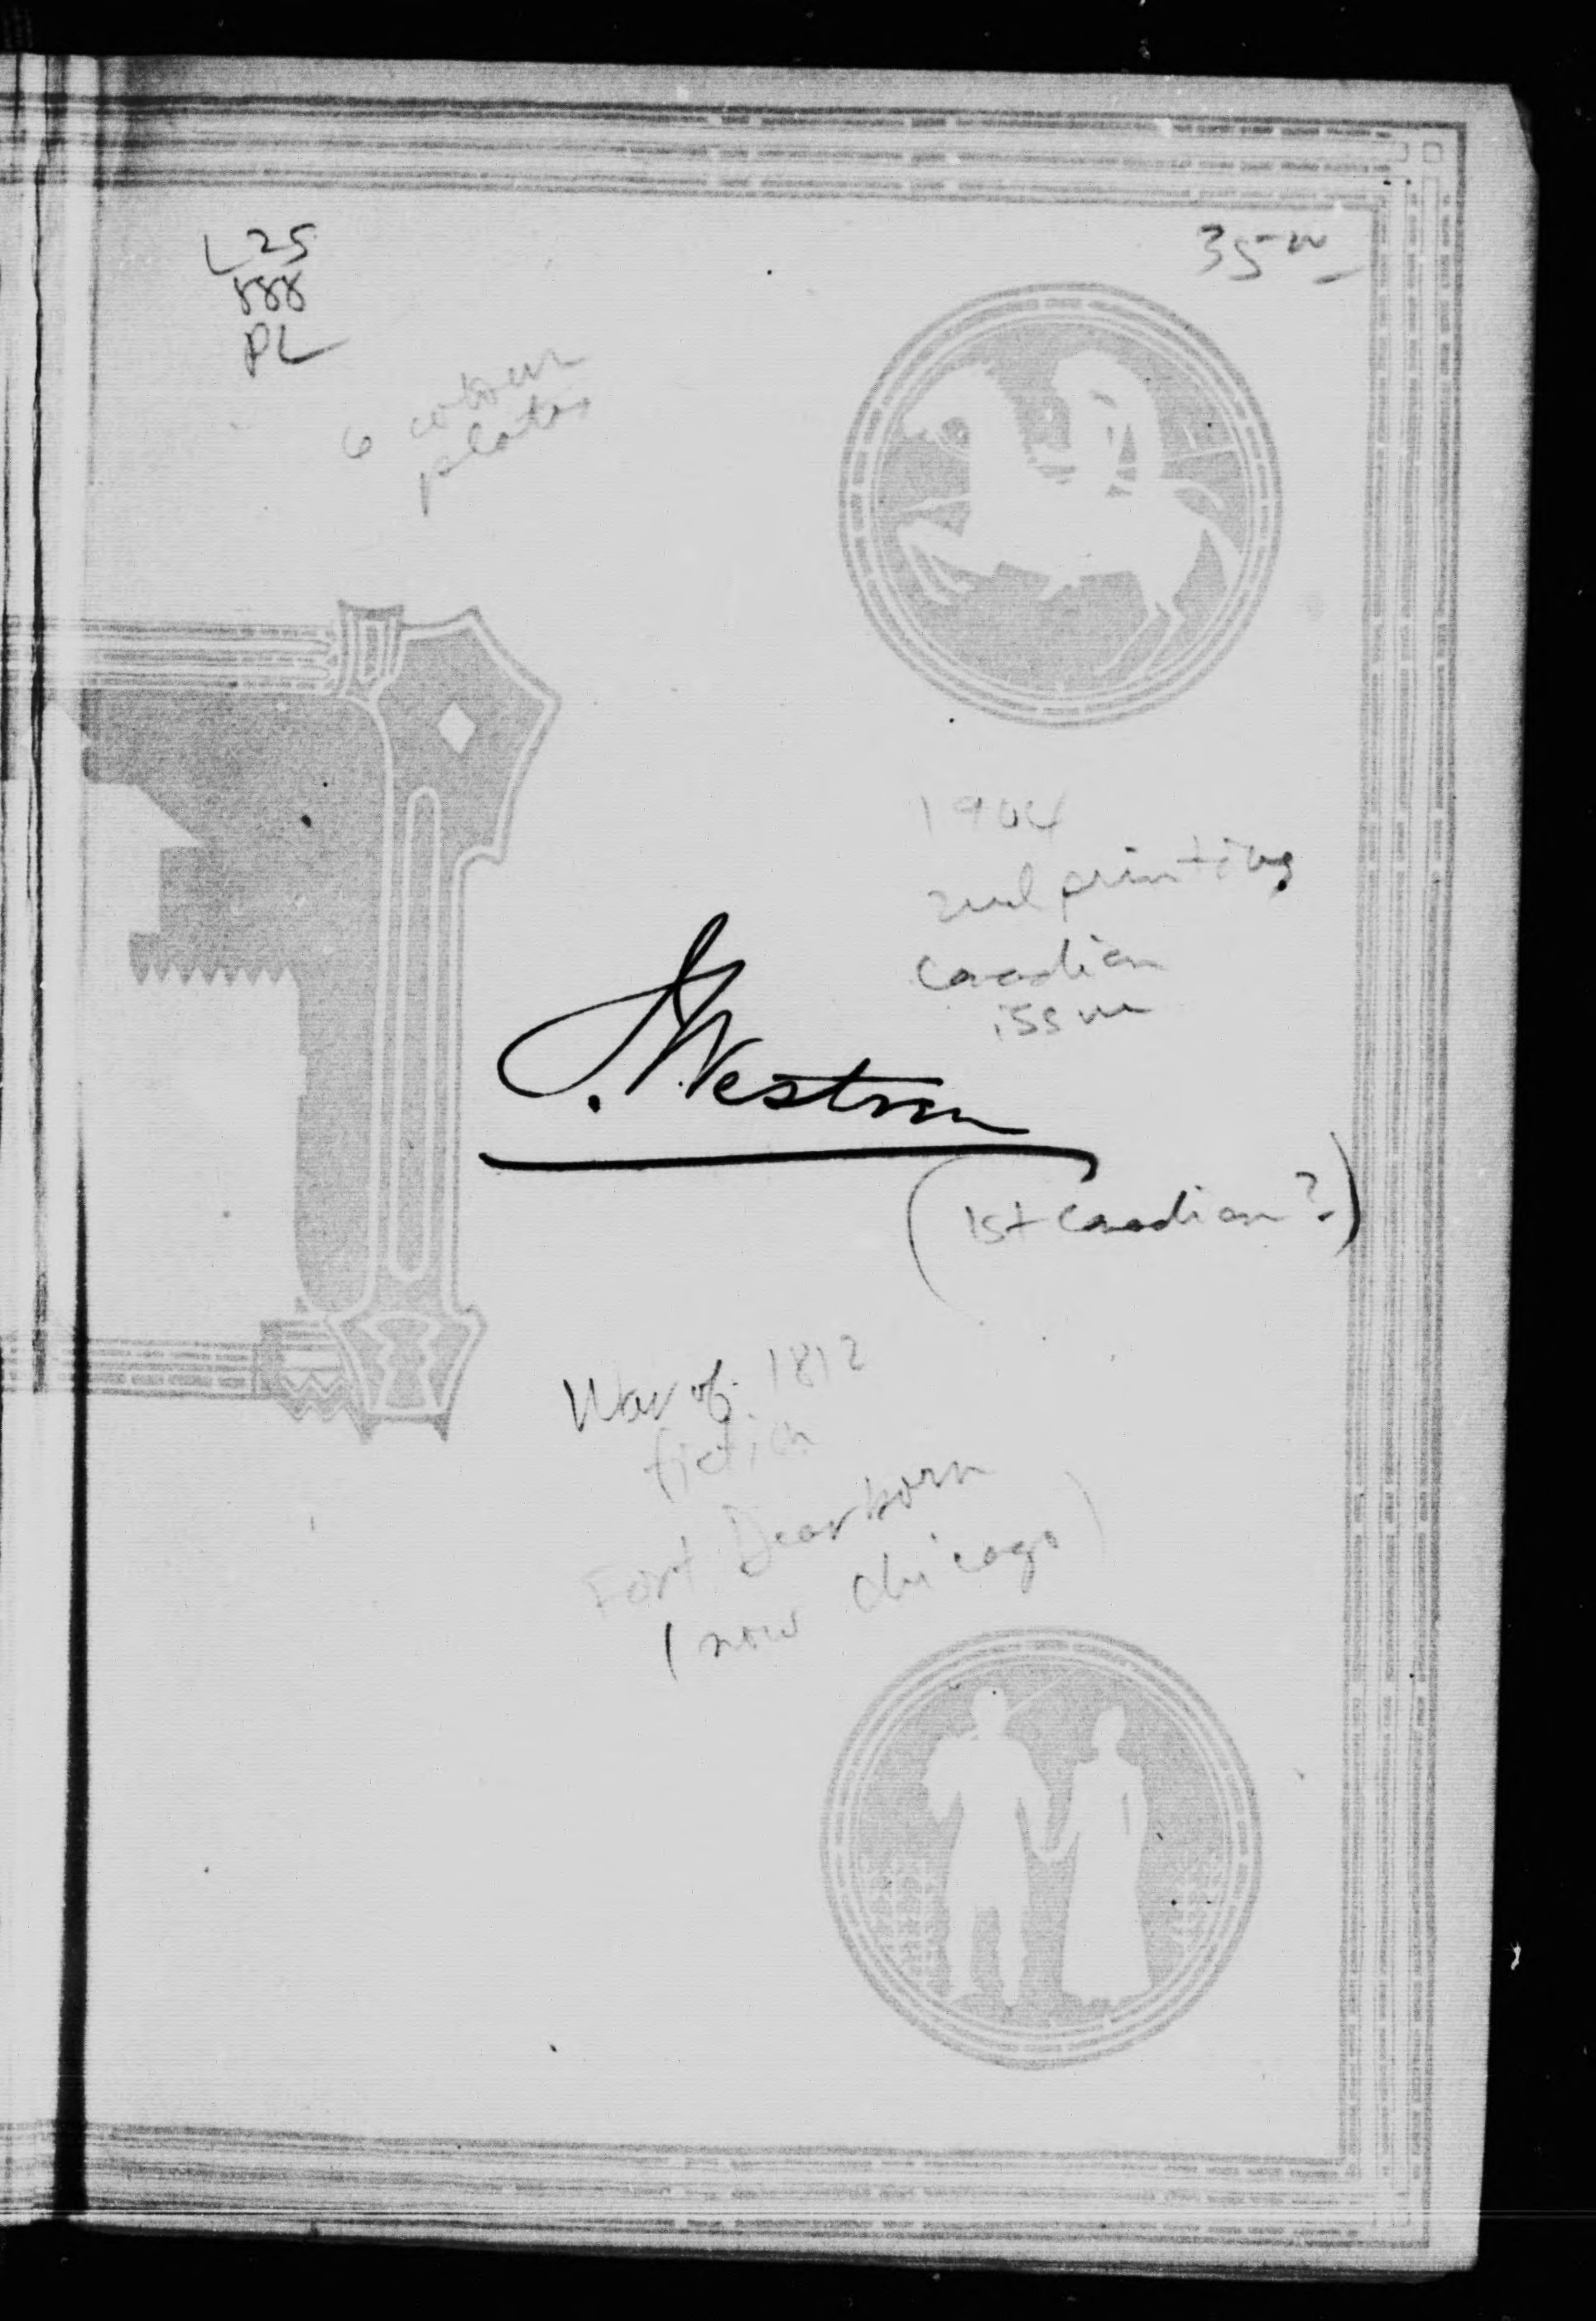 L25
888
PL
35⁰⁰
6 colour
plates
1904
2nd printing
Canadian
issue
J. Westron
(1st Canadian?)
War of 1812
fiction
Fort Dearborn
(now Chicago)